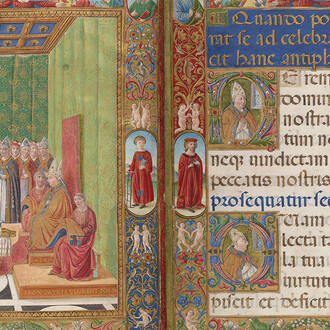 Quando po
rat se ad celebra
cit hanc antiph
Ne remi
domin
nostra
tum no
neqz uindictam
peccatis nostris
prosequatur se
Quam
lecta ta
la tua
uirtut
picit et defici